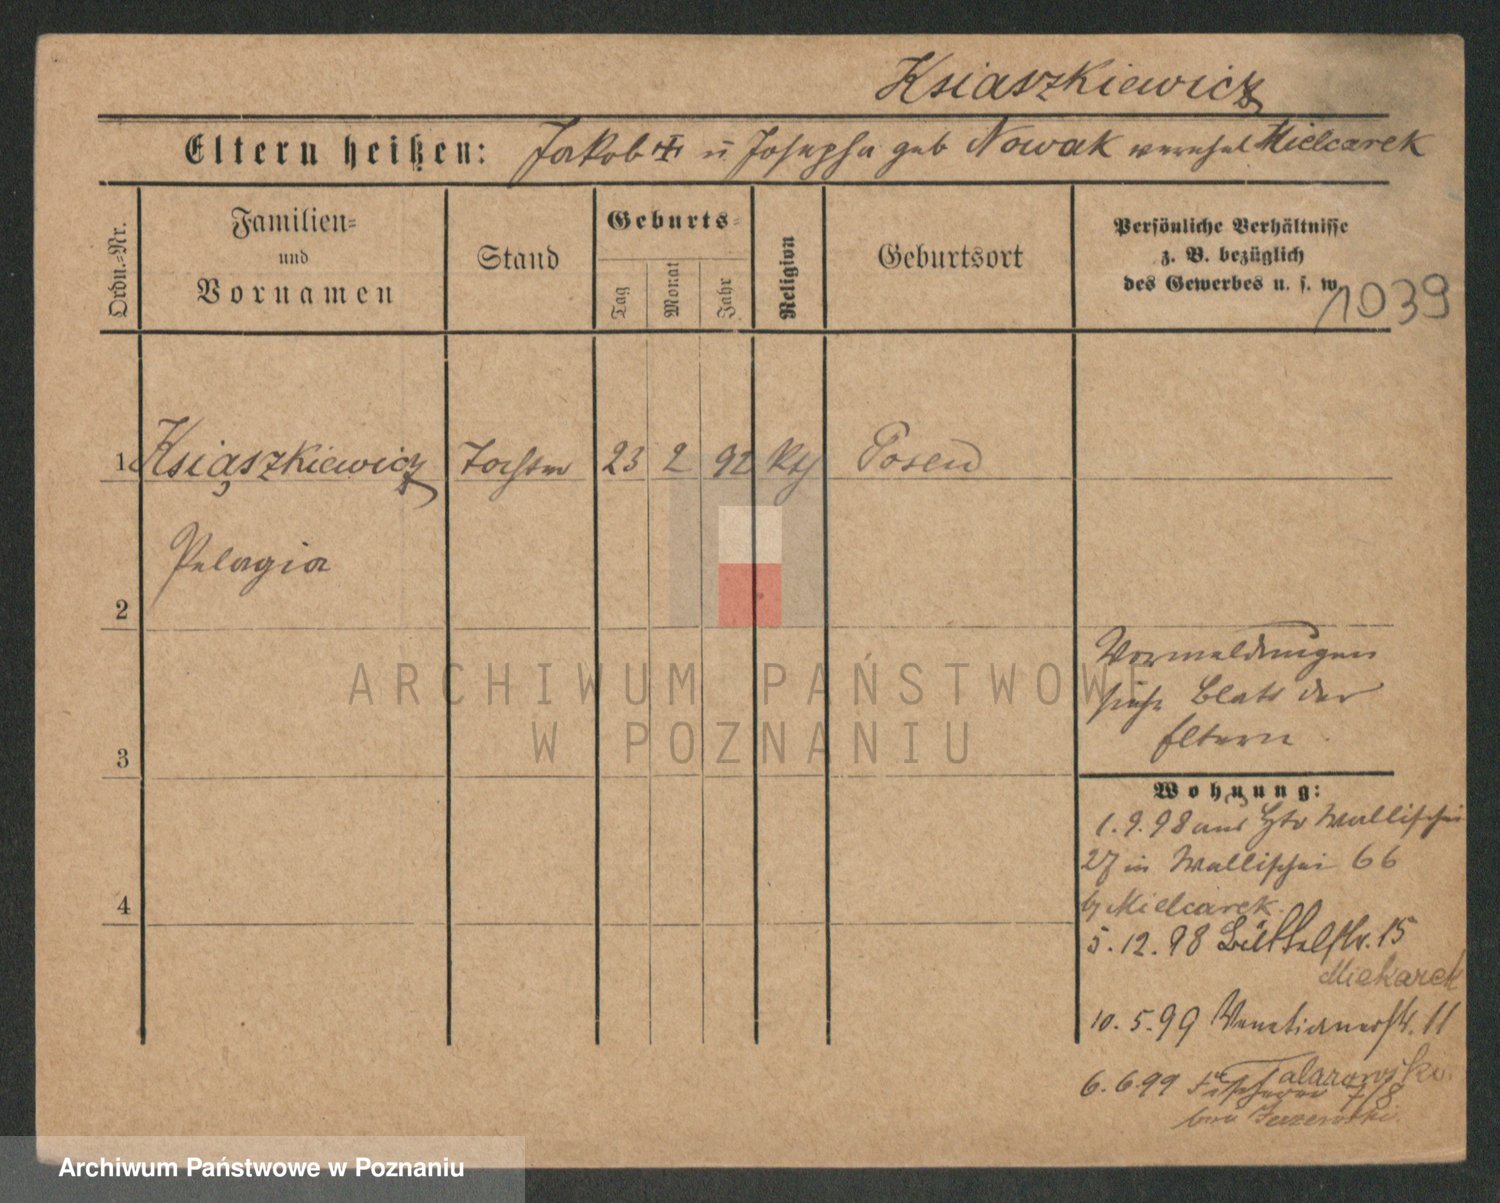 Ksiaszkiewicz
Eltern heißen: Jakob ✝ u Josepha geb Nowak verehel Mielcarek
Ordn.-Nr.
Familien-
und
Vornamen
Stand
Geburts-
Tag
Monat
Jahr
Religion
Geburtsort
Persönliche Verhältnisse
z. B. bezüglich
des Gewerbes u. s. w.
1039
1 Książkiewicz Tochter 23 2 92 kth Posen
Pelagia
2
Vormeldungen
siehe Blatt der
Eltern.
3
Wohnung:
1.9.98 aus Wallischei
27 in Wallischei 66
by Mielcarek.
4
5.12.98 Büttelstr. 15
Mielcarek
10.5.99 Venetianerstr. 11
Talarowski.
6.6.99 Fischerei 7/8
ARCHIWUM PAŃSTWOWE
W POZNANIU
Archiwum Państwowe w Poznaniu